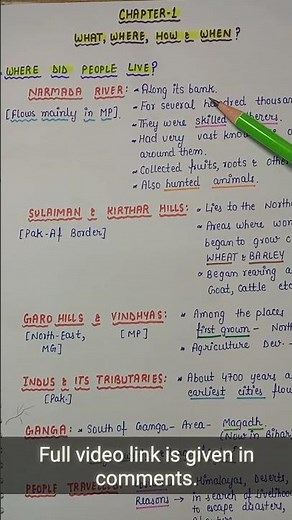 CHAPTER-1
WHAT, WHERE, HOW & WHEN?
WHERE DID PEOPLE LIVE?
NARMADA RIVER:
[Flows mainly in MP].
• Along its bank.
• For several hundred thousan
• They were skilled
• Had very vast
around them.
• Collected fruits, roots & othe
• Also hunted animals.
SULAIMAN & KIRTHAR HILLS:
[Pak-Af Border]
• Lies to the North
• Areas where wom
began to grow c
WHEAT & BARLEY
• Began rearing a
Goat, cattle etc
GARO HILLS & VINDHYAS:
[North-East, [MP]
MG]
• Among the places
first grown - North
• Agriculture Dev. -
INDUS & ITS TRIBUTARIES:
[Pak.]
• About 4700 years a
earliest cities flou
GANGA: • South of Ganga - Area - Magadh
(Now in Bihar
Full video link is given in
comments.
PEOPLE TRAVELL
Himalayas, Deserts,
Reasons → in search of livelihood
to escape disasters,